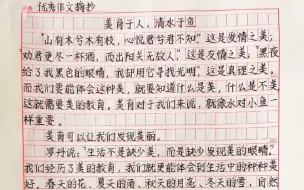 优秀作文摘抄
美育于人，清水于鱼
“山有木兮木有枝，心悦君兮君不知”，这是爱情之美；
劝君更尽一杯酒，西出阳关无故人”，这是友情之美；“黑夜
给了我黑色的眼睛，我却用它寻找光明”，这是真理之美，
而我们要能体会这种美，就要知道什么是美，什么是不美
这就需要美的教育，美育对于我们来说，就像水对小鱼一
样重要。
美育可以让我们发现美丽。
罗丹说：“生活不是缺少美，而是缺少发现美的眼睛。”
我们经历了美的教育，我们就更能体会到生活中的种种美
好。春天的花、夏天的雨、秋天的月亮、冬天的雪，闭然